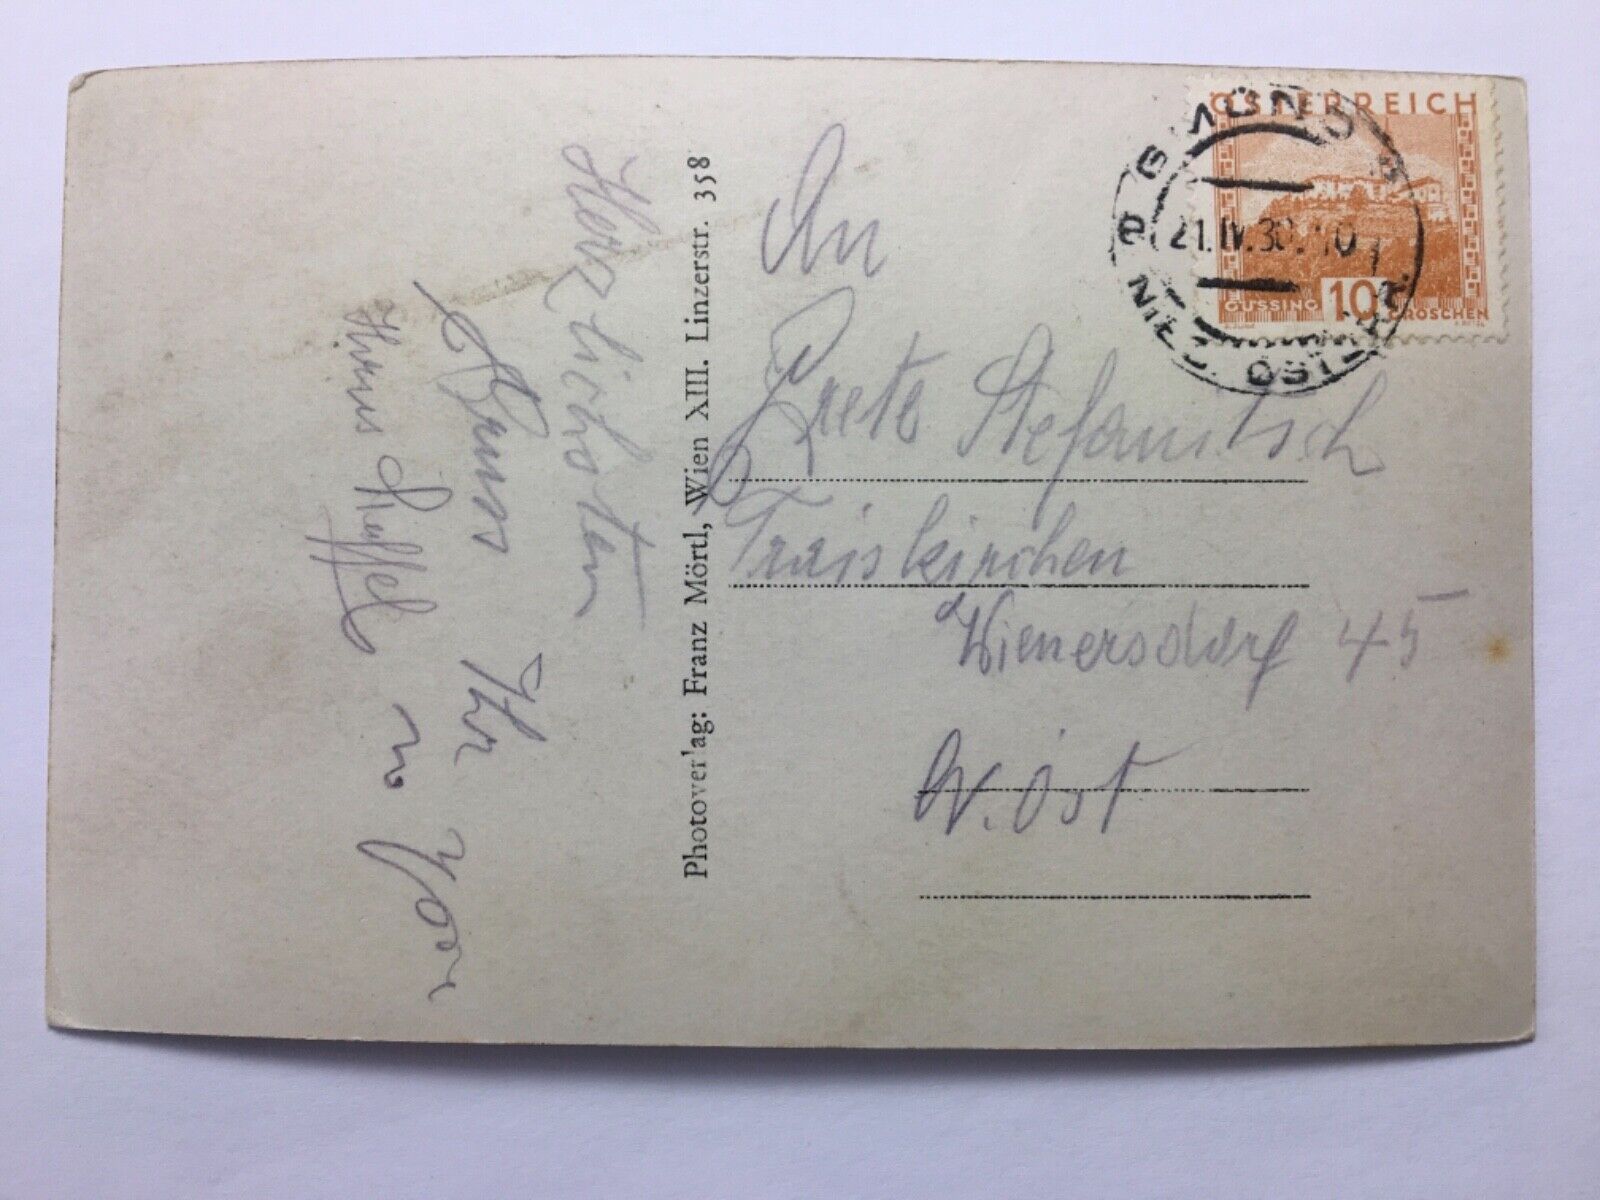 Herzlichsten
Gruss Ihr
Hans
Photoverlag: Franz Mörtl, Wien XIII. Linzerstr. 358
An
Grete Stefanitsch
Traiskirchen
Wienersdorf 45
N. Öst
ÖSTERREICH
GÜSSING 10 GROSCHEN
GMÜND
21.IV.30. 10
NIED. ÖSTERR.